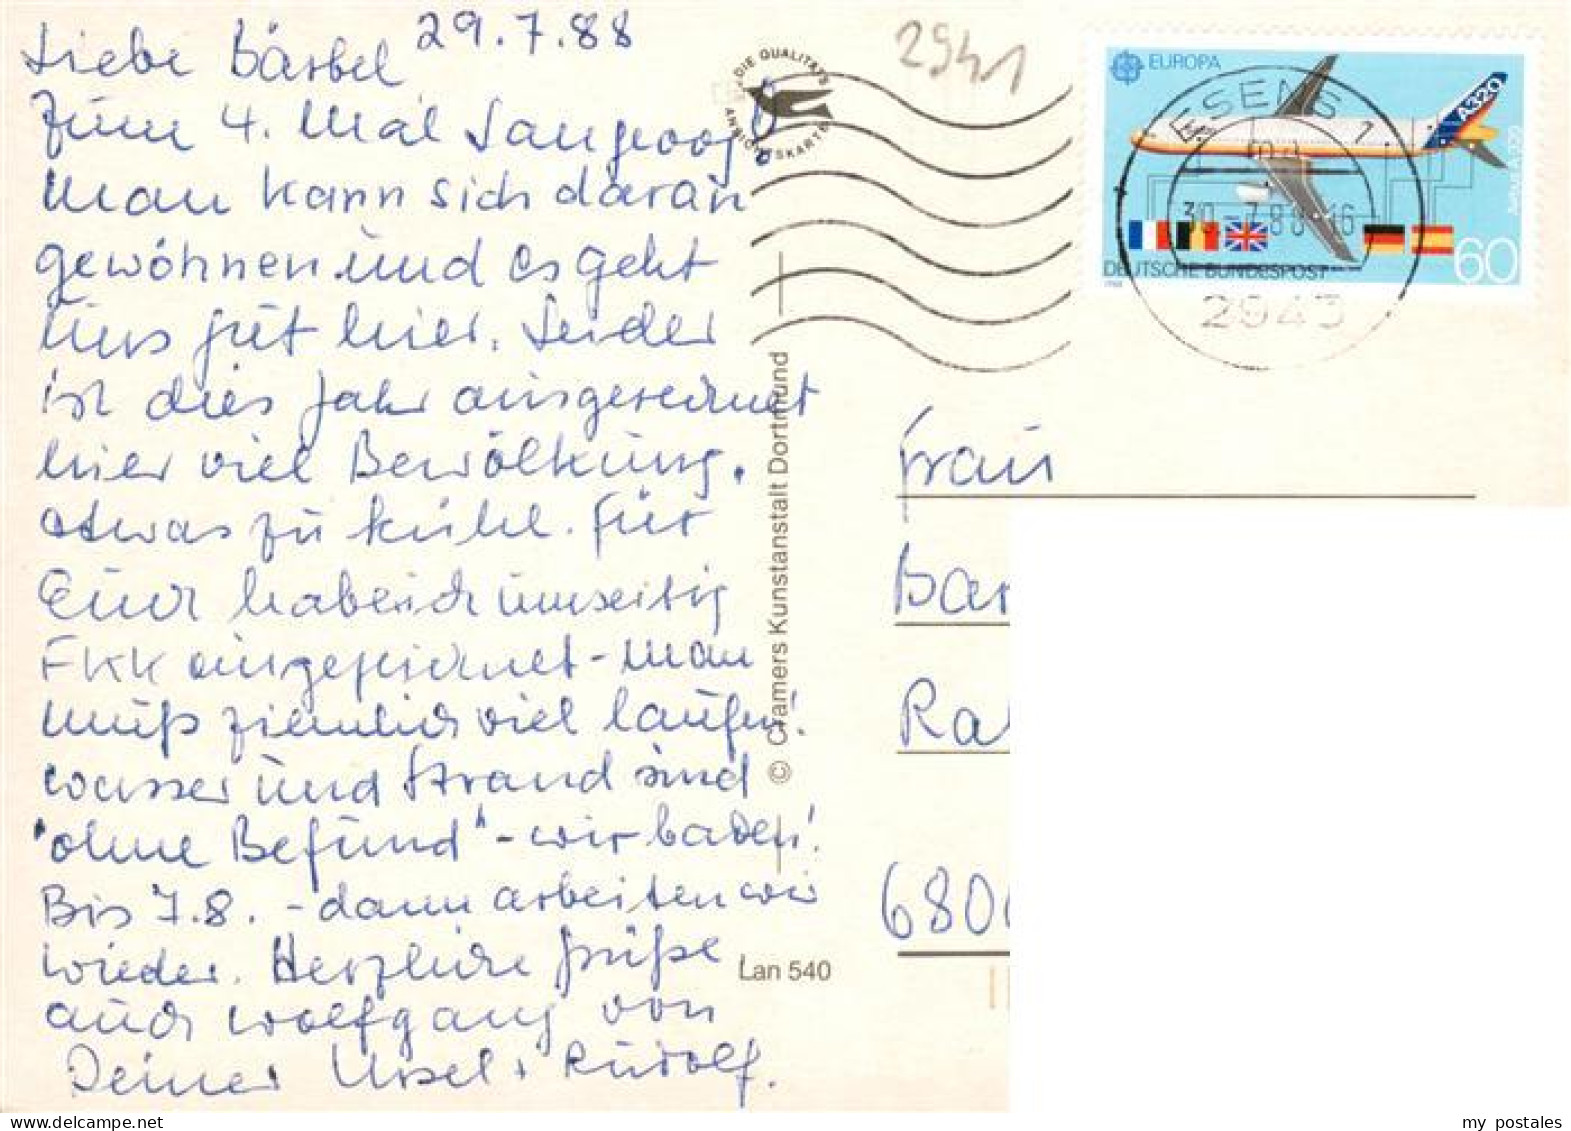 Liebe Bärbel 29.7.88
Zum 4. Mal Langeoog!
Man kann sich daran
gewöhnen und es geht
uns gut hier. Leider
ist dies Jahr ausgerechnet
hier viel Bewölkung.
etwas zu kühl. Für
Euch habe ich umseitig
FKK eingezeichnet - man
muß ziemlich viel laufen!
Wasser und Strand sind
"ohne Befund" - wir baden!
Bis 7.8. - dann arbeiten wir
wieder. Herzliche Grüße,
auch Wolfgang von
Deiner Ursel + Rudolf.
DIE QUALITÄTS
ANSICHTSKARTE
© Cramers Kunstanstalt Dortmund
Lan 540
2941
EUROPA
A320
AIRBUS A320
DEUTSCHE BUNDESPOST
1988
60
ESENS 1
30.-7.88-16
2943
Frau
Bar
Ra
680
my postales